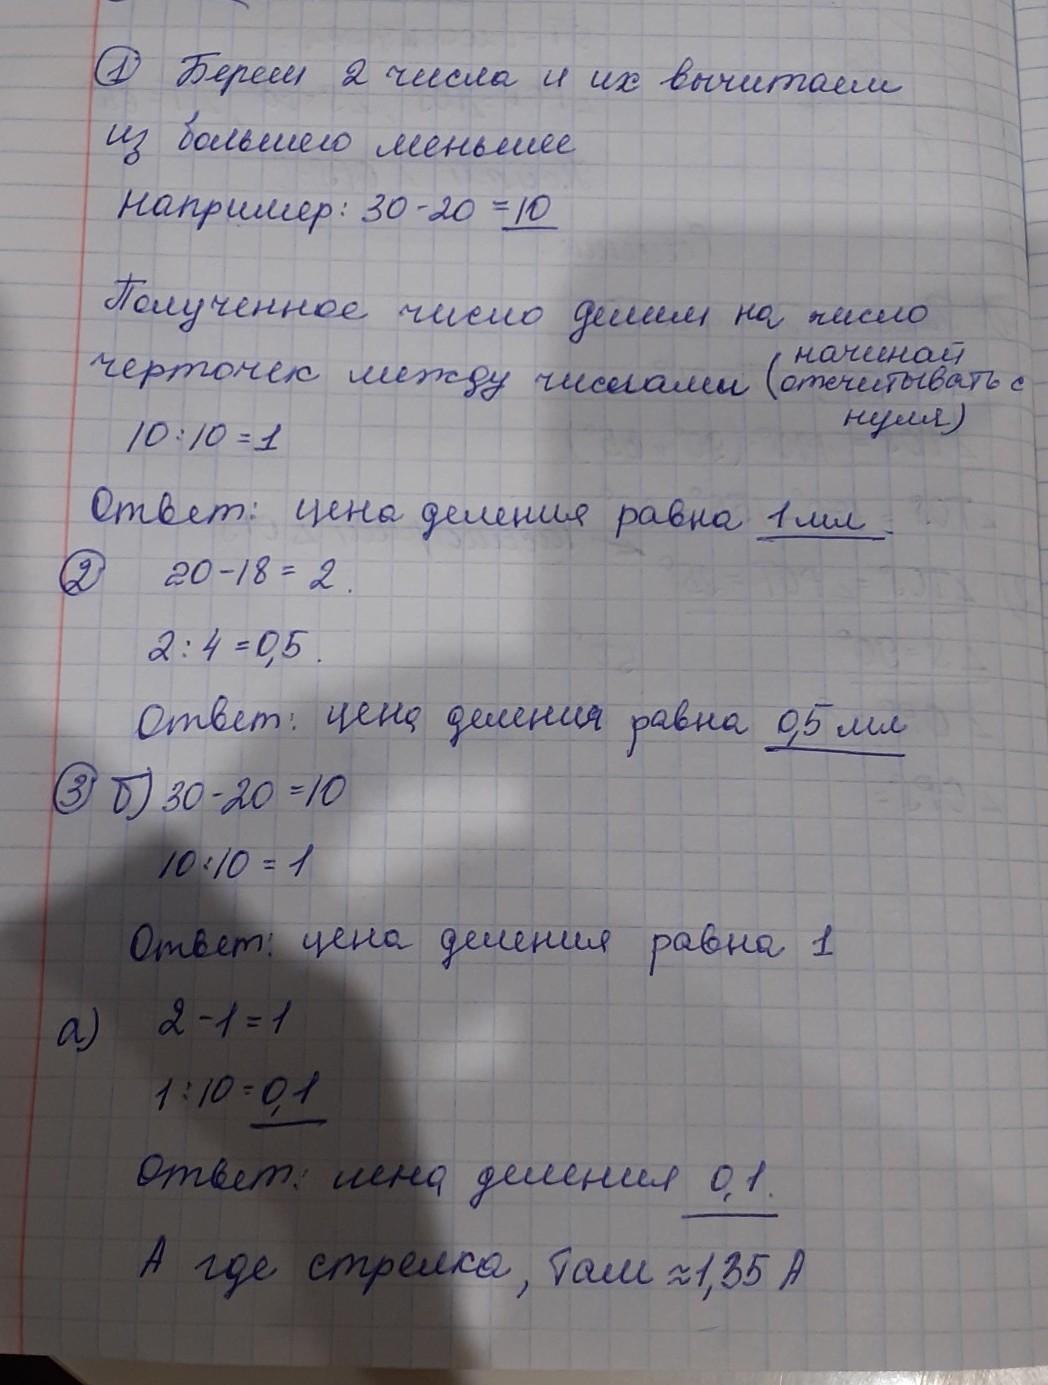 ① Берем 2 числа и их вычитаем
из большего меньшее
Например: 30-20 =10
Полученное число делим на число
черточек между числами (начинай
отсчитывать с
нуля)
10:10=1
Ответ: цена деления равна 1мл
② 20-18= 2.
2:4=0,5.
Ответ: цена деления равна 0,5 мл
③ б) 30-20=10
10:10=1
Ответ: цена деления равна 1
а) 2-1=1
1:10=0,1
Ответ: цена деления 0,1.
А где стрелка, там ≈1,35 А